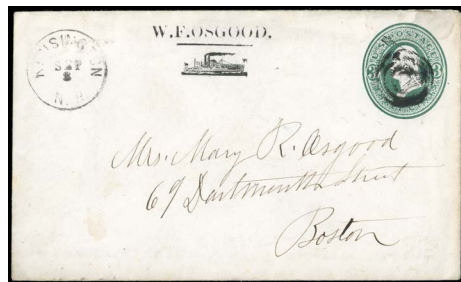 W. F. OSGOOD.
KENSINGTON
SEP
3
N.H.
U.S. POSTAGE
Mrs. Mary R. Osgood
69 Dartmouth Street
Boston